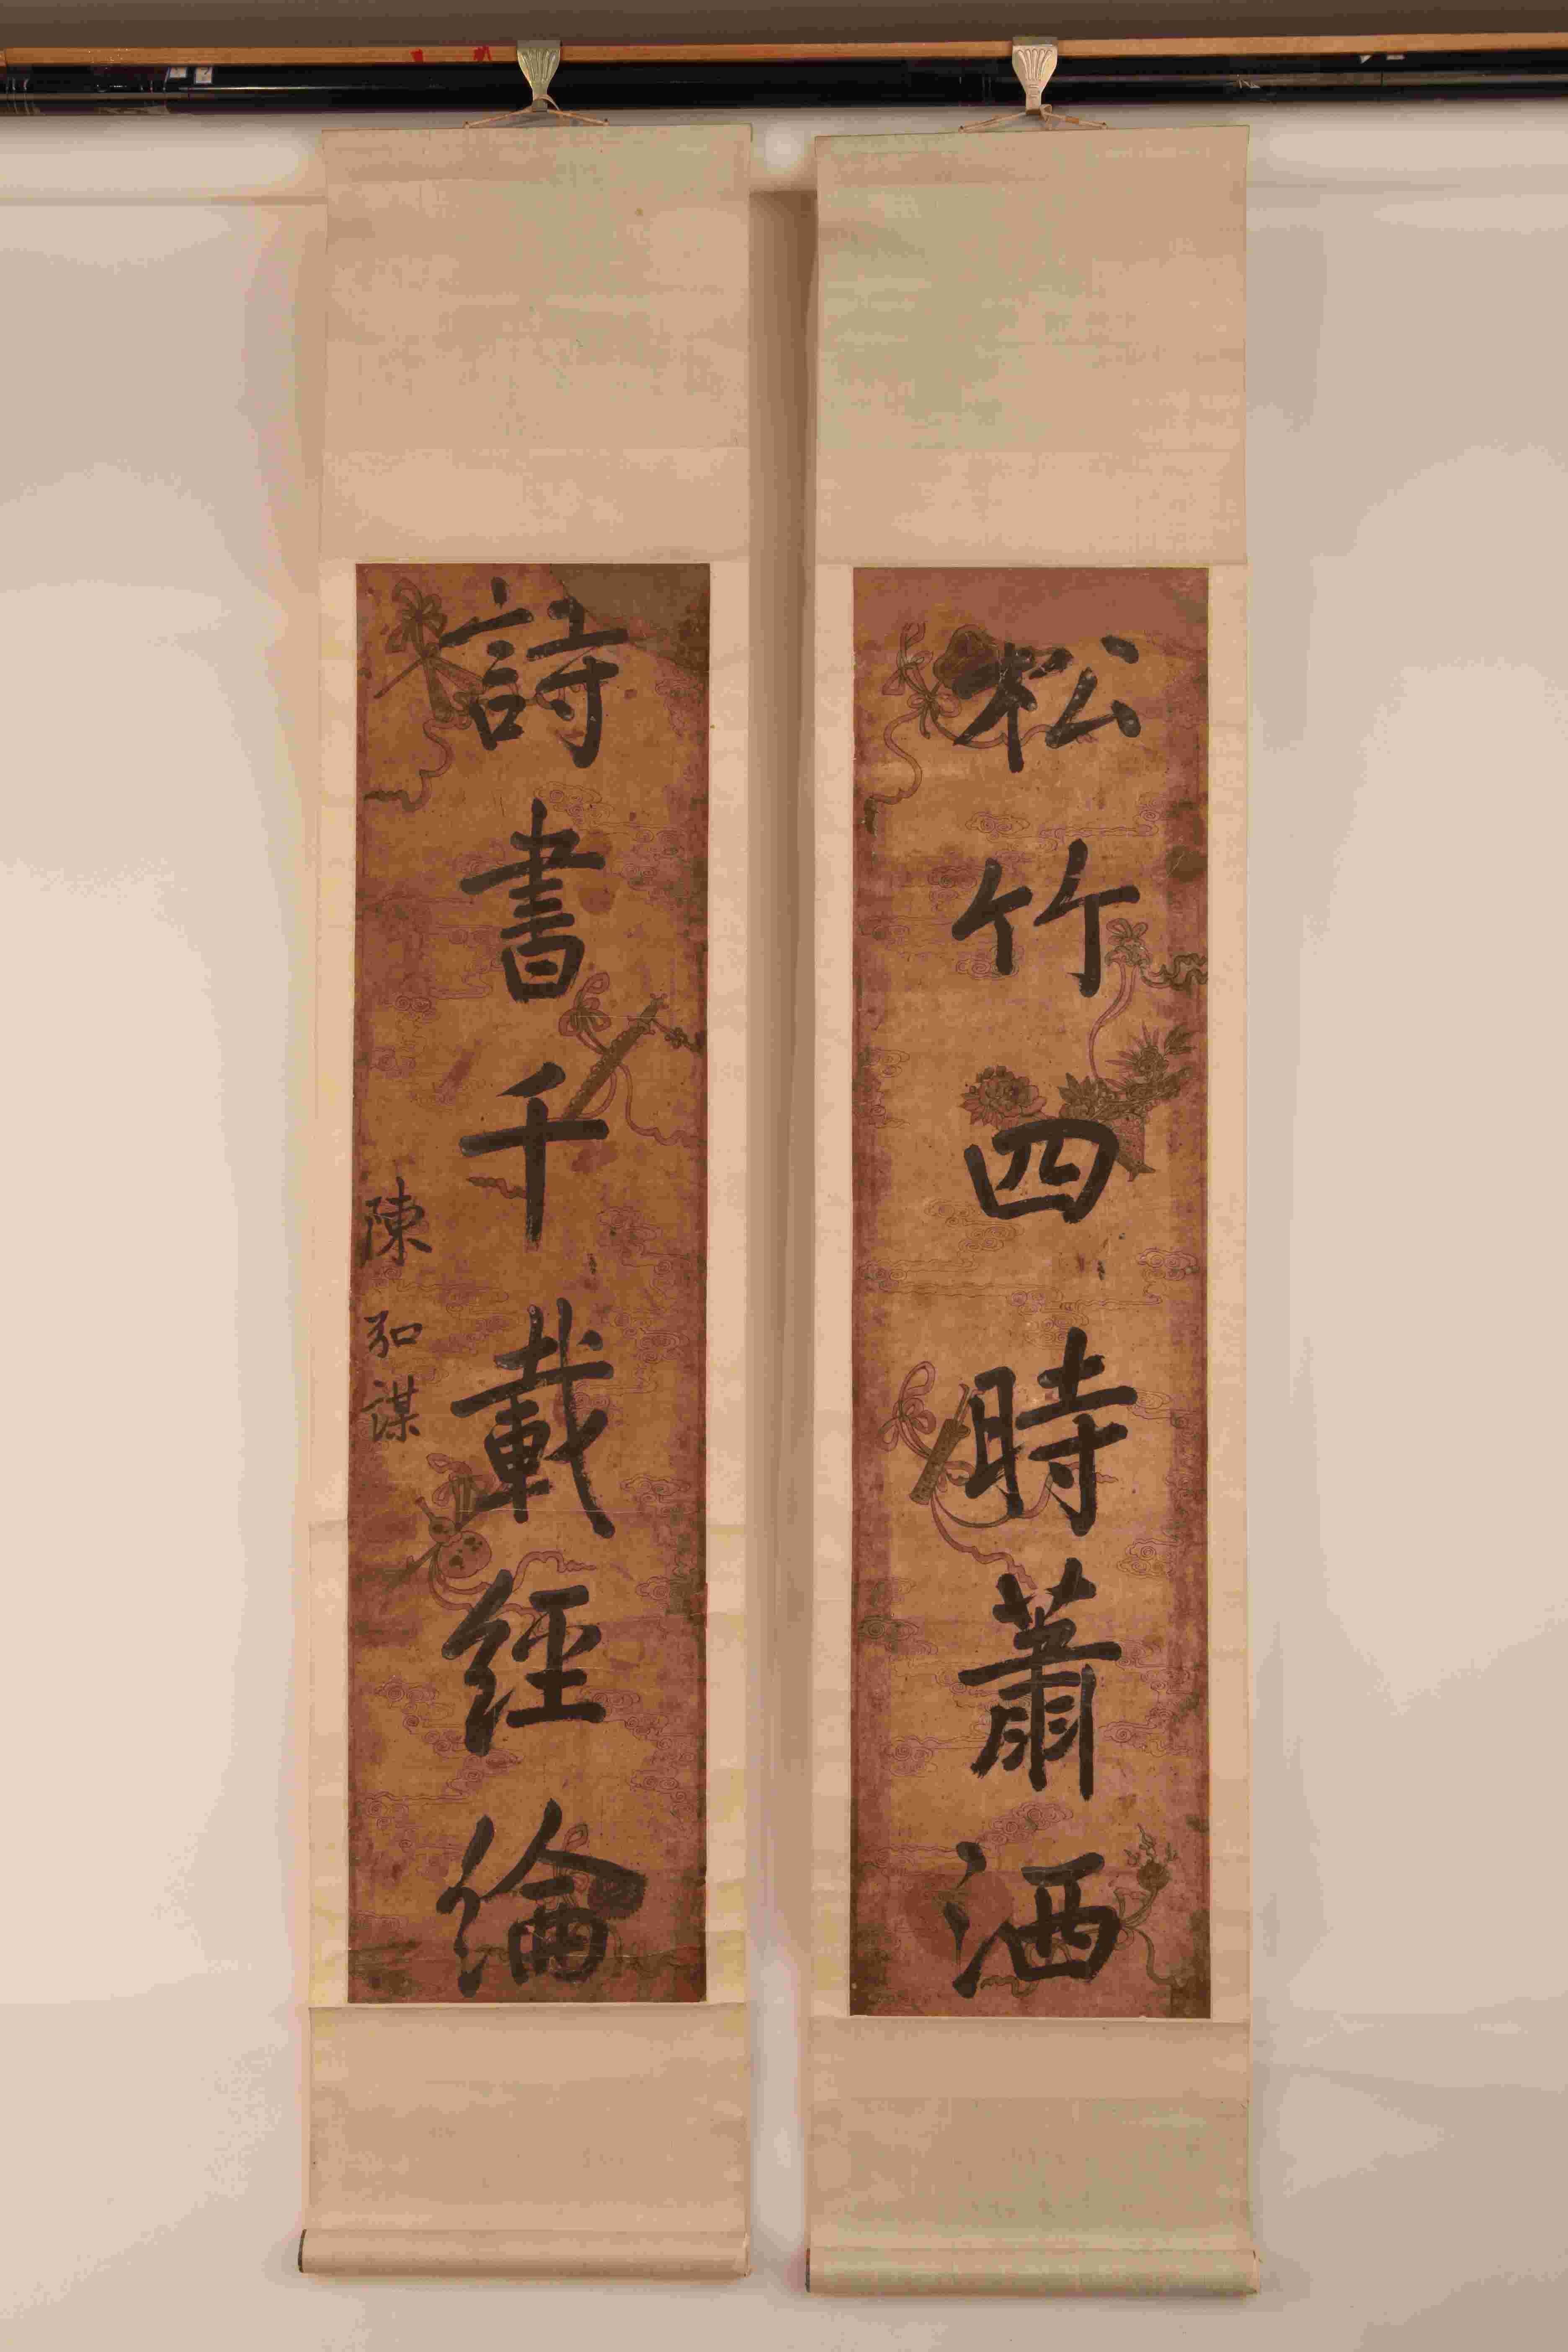 松竹四時蕭洒
詩書千載經綸
陳弘謀